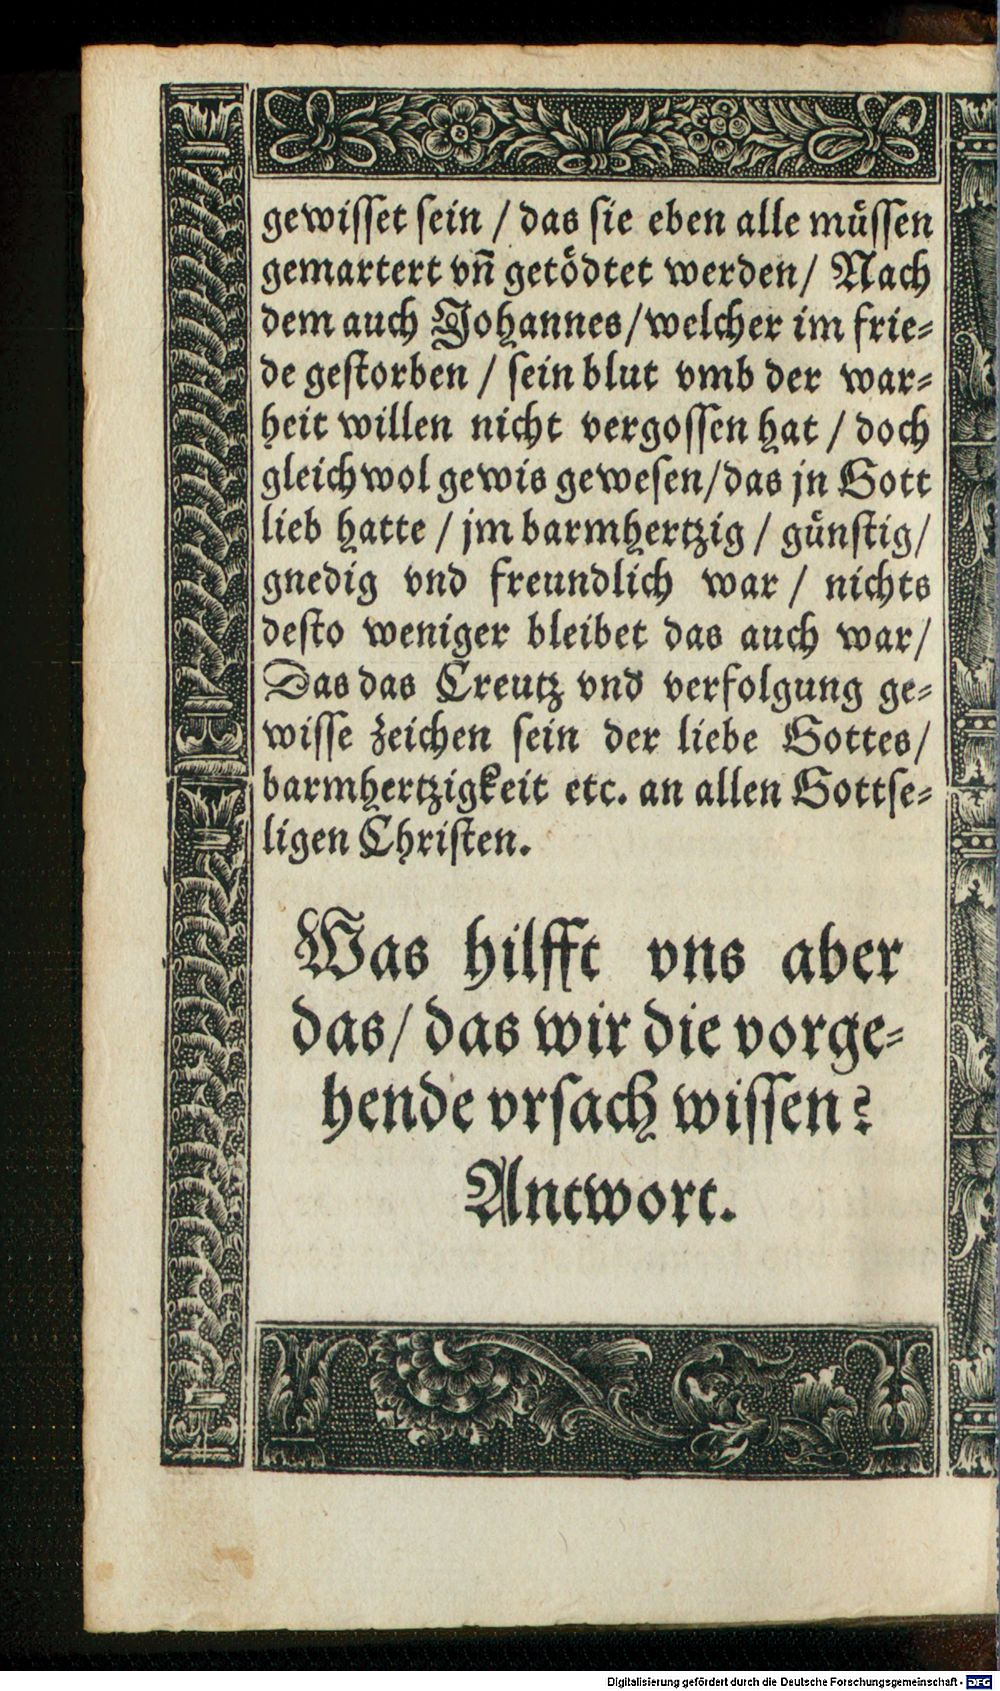 gewisset sein / das sie eben alle müssen
gemartert vñ getödtet werden / Nach
dem auch Johannes / welcher im frie-
de gestorben / sein blut vmb der war-
heit willen nicht vergossen hat / doch
gleichwol gewis gewesen / das jn Gott
lieb hatte / jm barmhertzig / günstig /
gnedig vnd freundlich war / nichts
desto weniger bleibet das auch war /
Das das Creutz vnd verfolgung ge-
wisse zeichen sein der liebe Gottes /
barmhertzigkeit etc. an allen Gottse-
ligen Christen.
Was hilfft vns aber
das / das wir die vorge-
hende vrsach wissen?
Antwort.
Digitalisierung gefördert durch die Deutsche Forschungsgemeinschaft - DFG